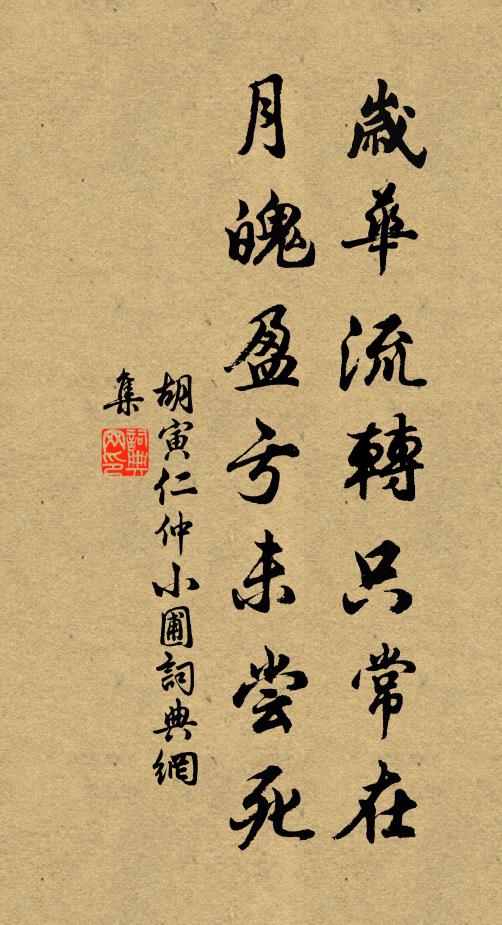 歲華流轉只常在
月魄盈亏未尝死
胡寅仁仲小圃詞典網
集
詞典
网印